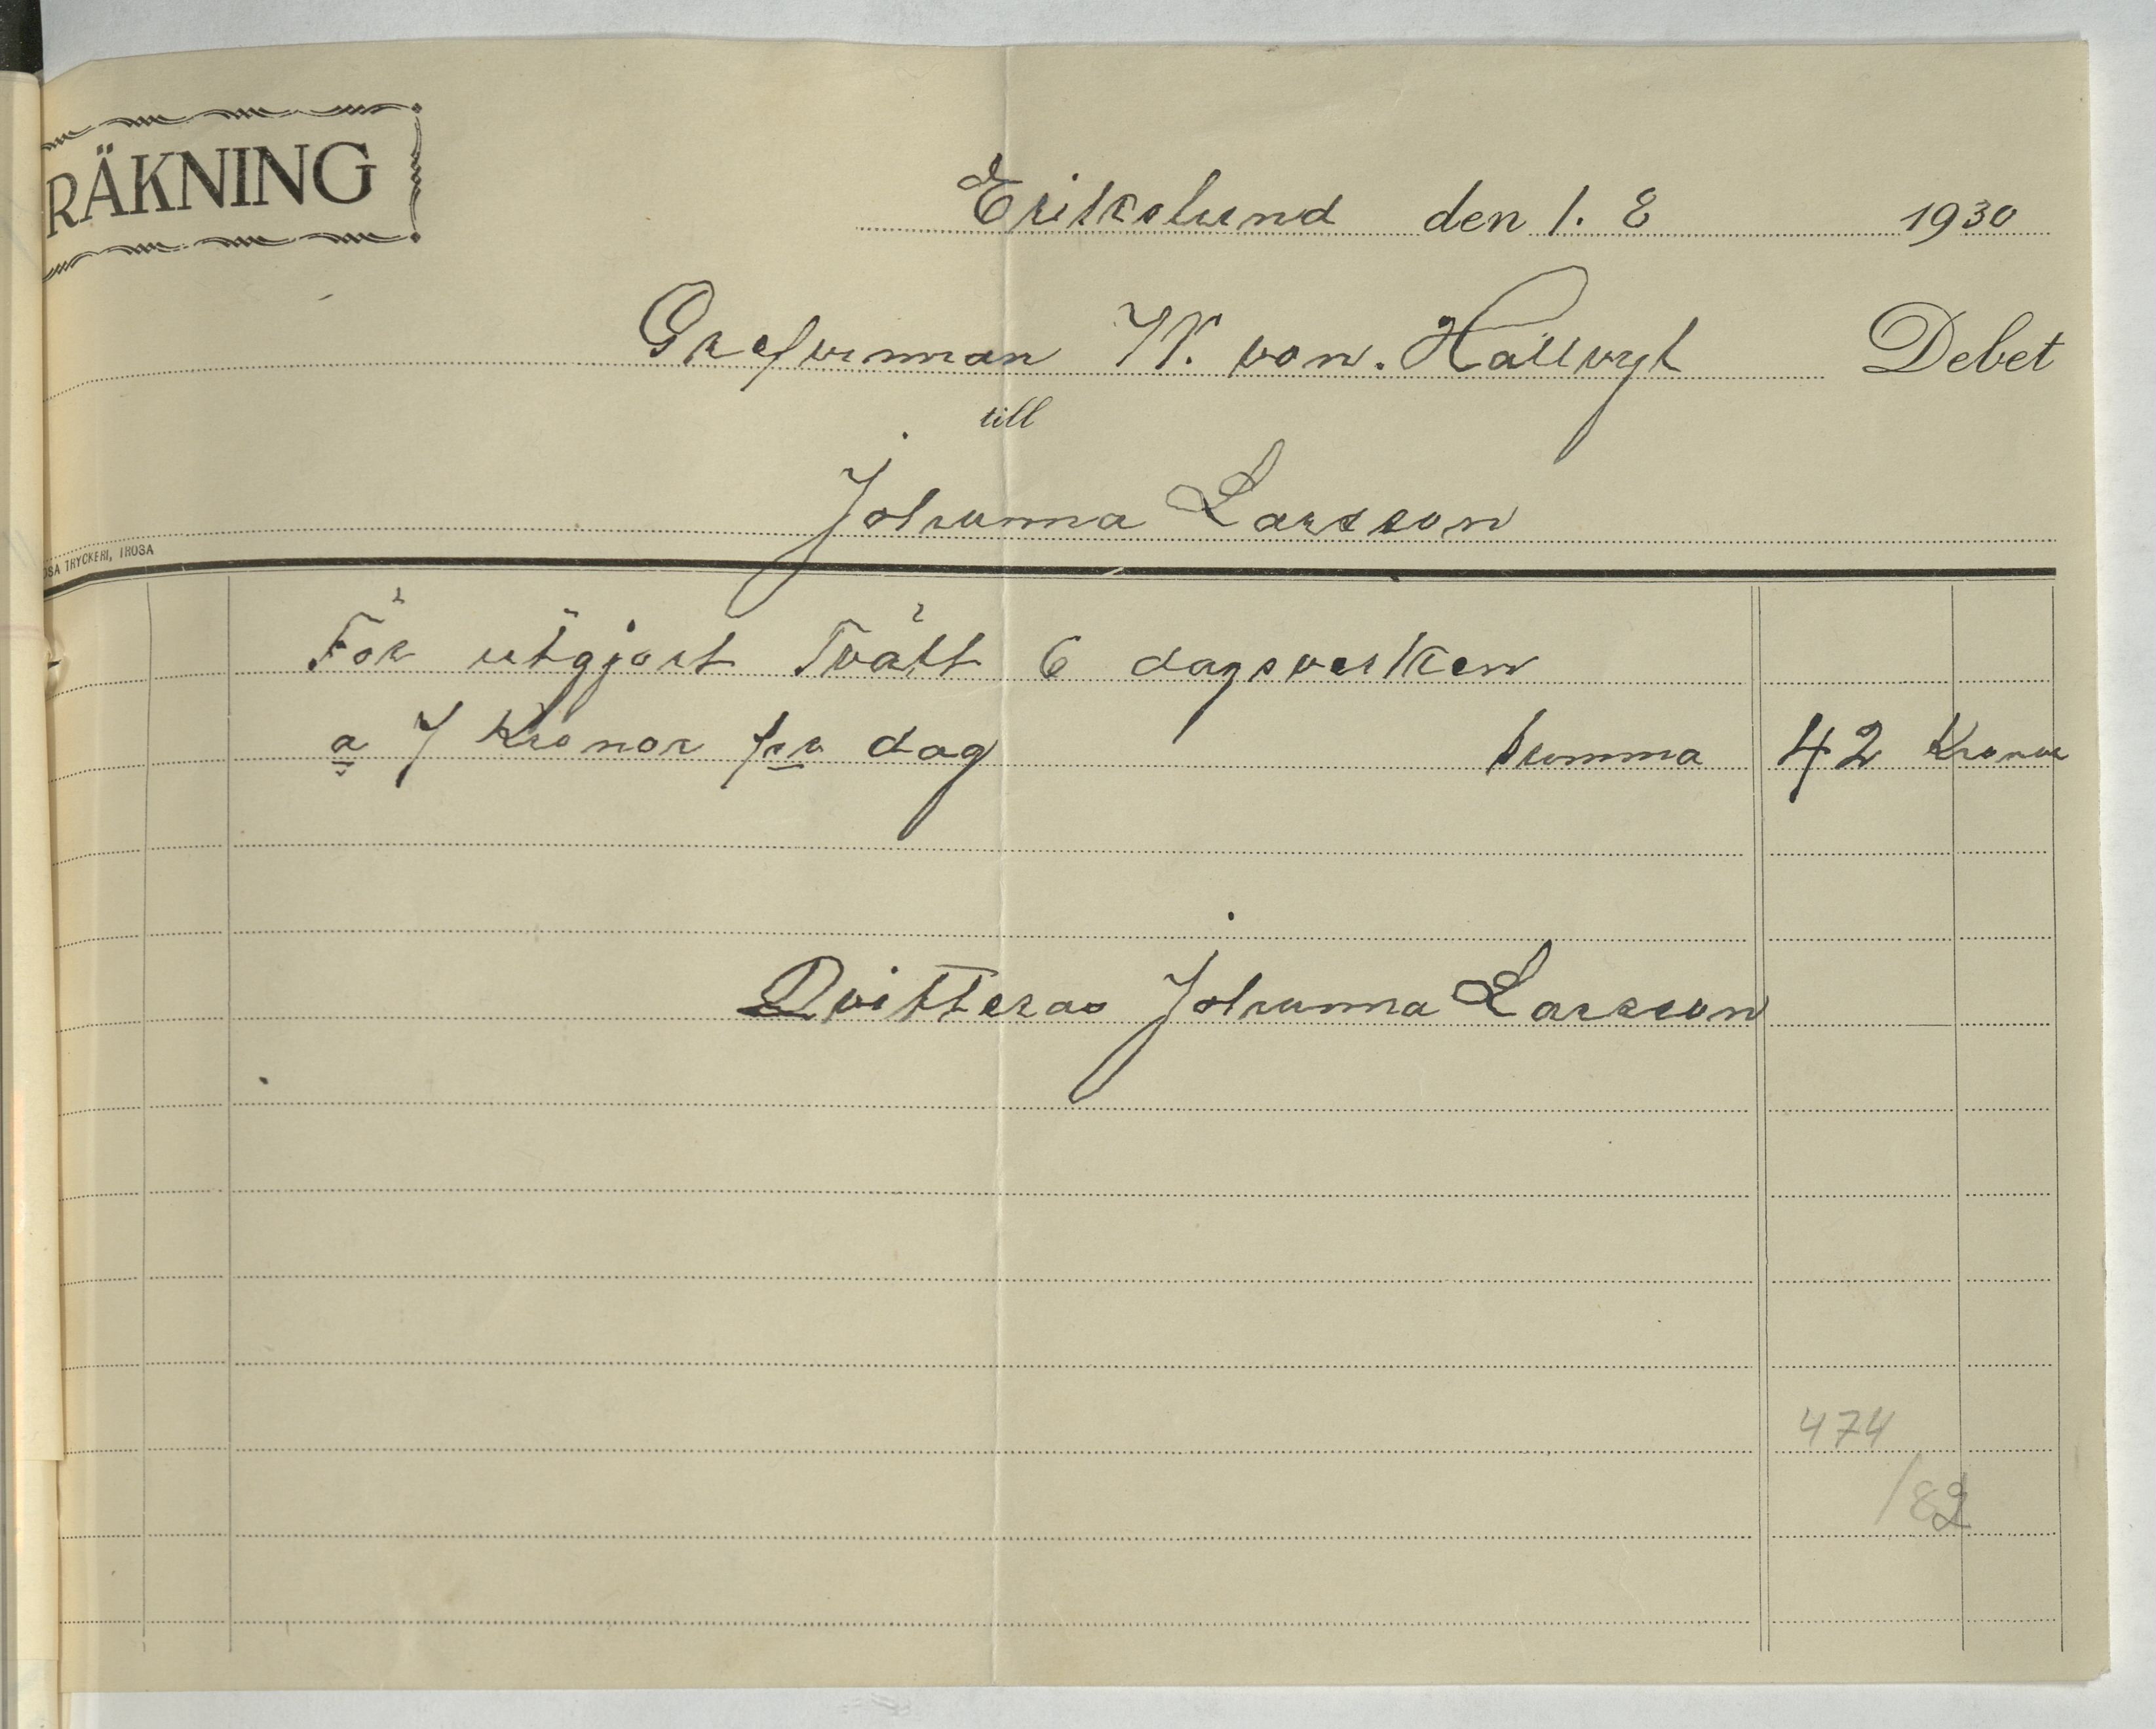 RÄKNING
Erikslund den 1. 8 1930
Grefvinnan W. von. Hallvyl Debet
till
Johanna Larsson
OSA TRYCKERI, TROSA
För utgjort Tvätt 6 dagsverken
a 7 Kronor pr dag Summa 42 Kronor
Qvitteras Johanna Larsson
474
/82